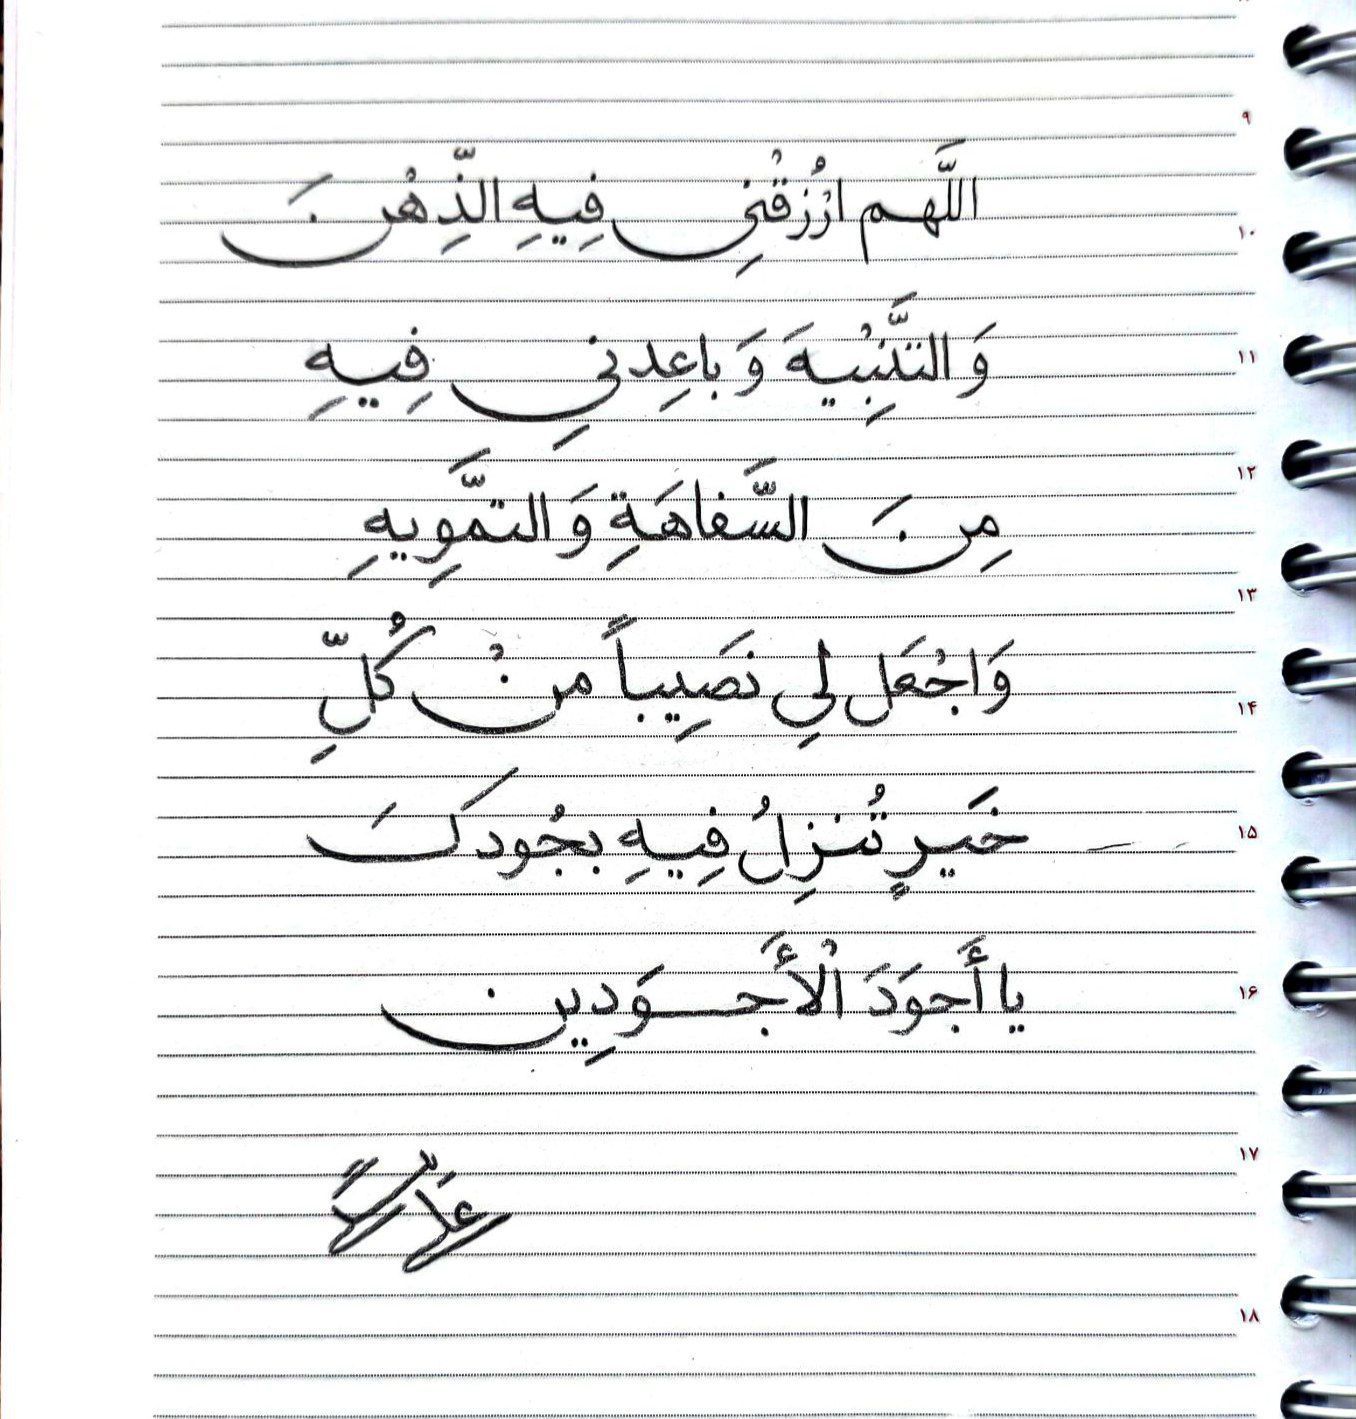 ۹
اللَّهم ارْزُقْنِي فِيهِ الذِّهْنَ
۱۰
وَ التَّنِبْيهَ وَ باعِدنِي فِيهِ
۱۱
مِنَ السَّفاهَةِ وَ التَّموِيهِ
۱۲
۱۳
وَ اجْعَل لِي نَصِيباً منْ كُلِّ
۱۴
خَيرٍ تُنزِلُ فِيهِ بجُودكَ
۱۵
يا أَجوَدَ الْأَجوَدِين
۱۶
۱۷
۱۸